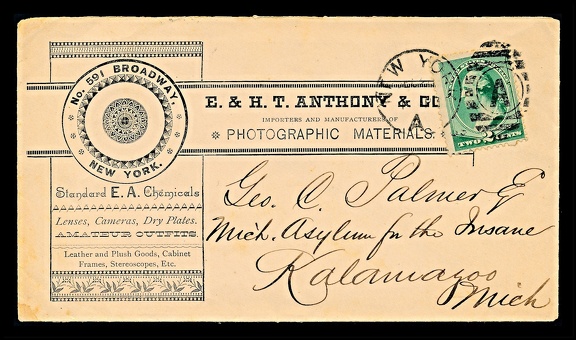 No. 591 BROADWAY,
NEW YORK.
E. & H. T. ANTHONY & CO
IMPORTERS AND MANUFACTURERS OF
PHOTOGRAPHIC MATERIALS.
Standard E. A. Chemicals
Lenses, Cameras, Dry Plates.
AMATEUR OUTFITS.
Leather and Plush Goods, Cabinet
Frames, Stereoscopes, Etc.
NEW YO
A
TWO
Geo. C. Palmer
Mich. Asylum for the Insane
Kalamazoo
Mich